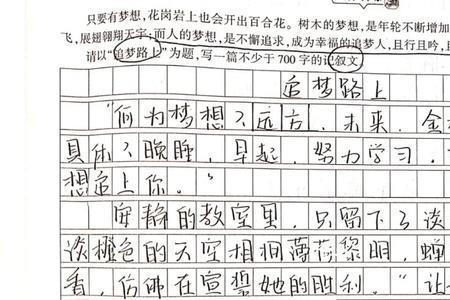 只要有梦想，花岗岩上也会开出百合花。树木的梦想，是年轮不断增加
飞，展翅翱翔天宇；而人的梦想，是不懈追求，成为幸福的追梦人，且行且吟，且
请以“追梦路上”为题，写一篇不少于700字的记叙文
追梦路上
“何为梦想？远方，未来，金
具体？晚睡，早起，努力学习，
想追上你。”
安静的教室里，只留下了淡
淡橙色的天空相间薄荷黎明，蝉
看，仿佛在宣誓她的胜利。“让